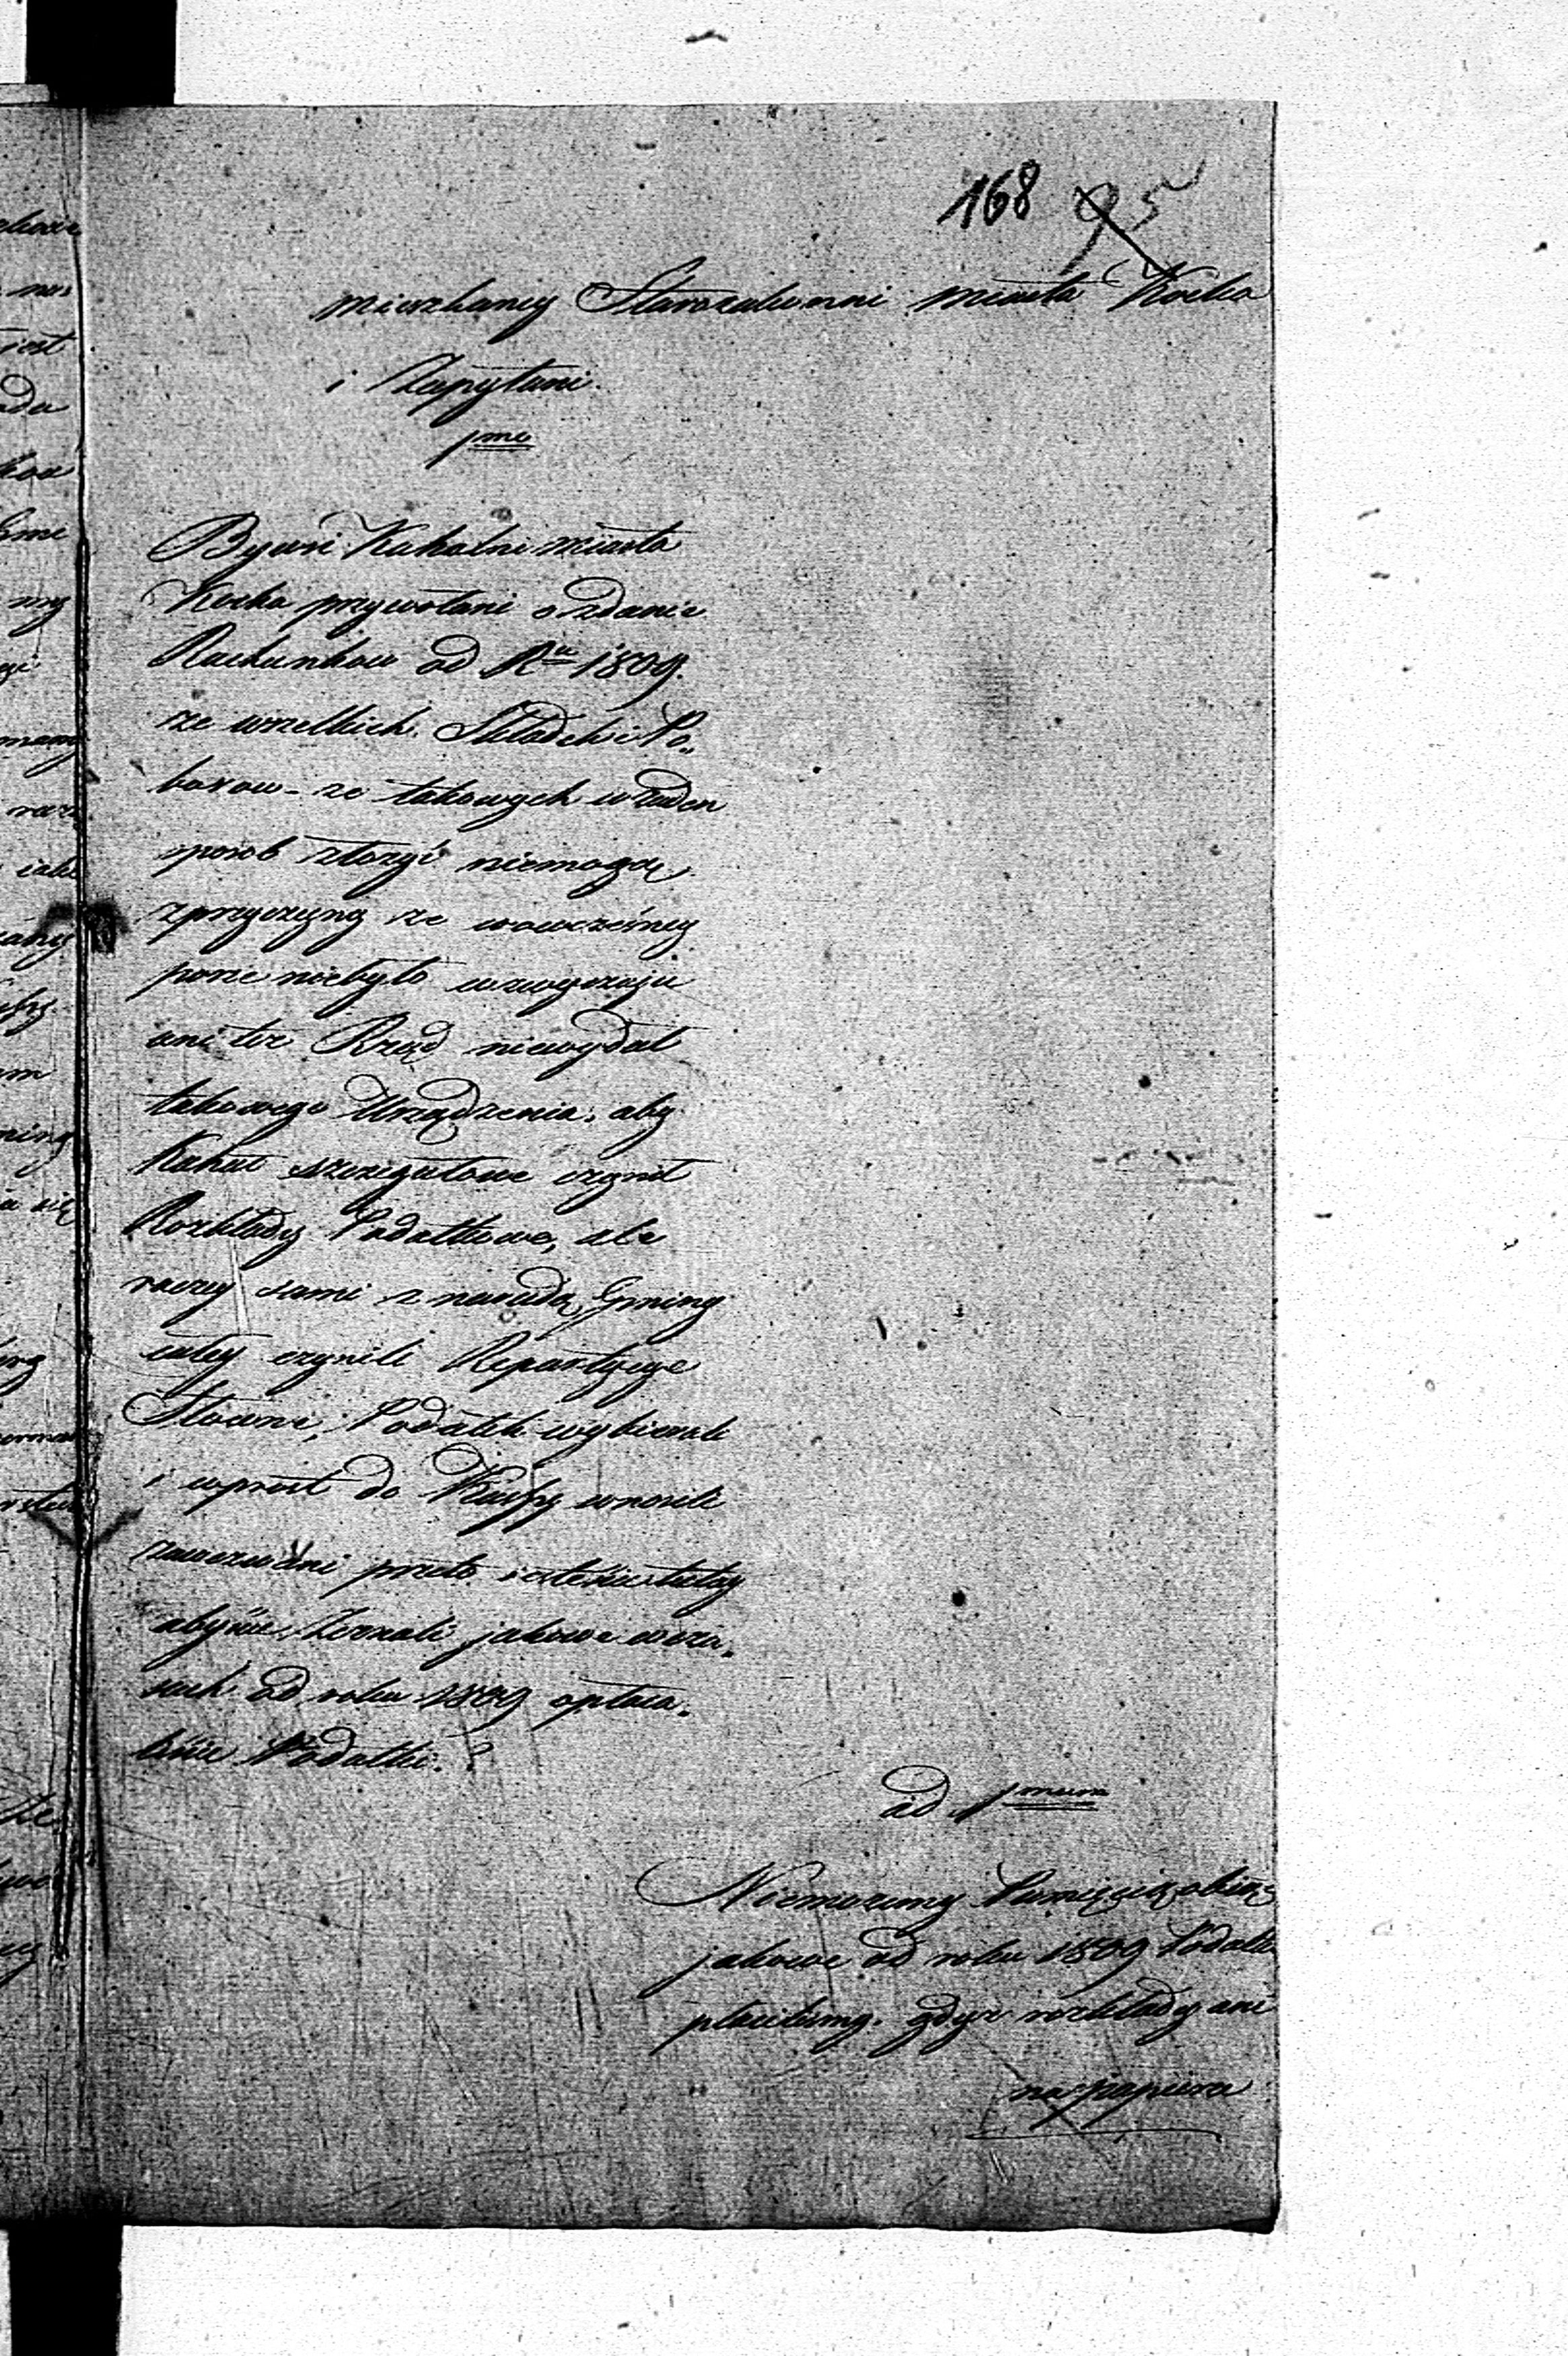 168 95
Mieszkańcy Starozakonni miasta Kocka
i Zapytani.
1mo
Bywsi Kahalni miasta
Kocka przywołani o zdanie
Rachunkow od Ru 1809.
ze wszelkich Składek i Po„
borow – ze takowych w żaden
sposob złożyć niemogą,
z przyczyny że wowczesney
porze niebyło w zwyczaju
ani też Rząd niewydał
takowego Urządzenia, aby
Kahał szczegułowe czynił
Rozkłady Podatkowe, ale
raczey sami z naradą Gminy
całey czynili Repartycye
Słowne, Podatek wybierali
i wprost do Kassy wnosili
zawezwani przeto iesteście tutay
abyście Zeznali jakowe w cza„
sach od roku 1809 opłaca„
liście Podatki.?
ad 1mum
Niemożemy Pamięcią obiąć
jakowe od roku 1809 Podatki
płaciliśmy. gdyż rozkłady ani
na papierze